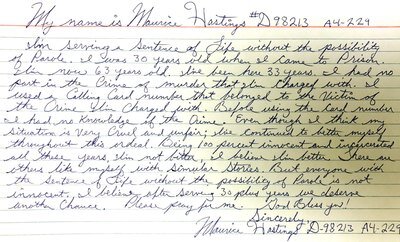 My name is Maurice Hastings #D98213 A4-229
I'm serving a sentence of Life without the possibility
of Parole. I was 30 years old when I came to Prison.
I'm now 63 years old. I've been here 33 years. I had no
part in the Crime of murder that I'm Charged with. I
used a Calling Card number that belonged to the Victim of
the Crime I'm Charged with. Before using the Card number
I had no Knowledge of the Crime. Even though I think my
situation is very Cruel and unfair; I've continued to better myself
throughout this ordeal. Being 100 percent innocent and incarcerated
all these years, I'm not bitter, I believe I'm better. There are
others like myself with Simular Stories. But everyone with
the Sentence of Life without the possibility of Parole is not
innocent, I believe after serving 30 plus years we deserve
another Chance. Please pray for me. God Bless you!
Sincerely,
Maurice Hastings D-98213 A4-229